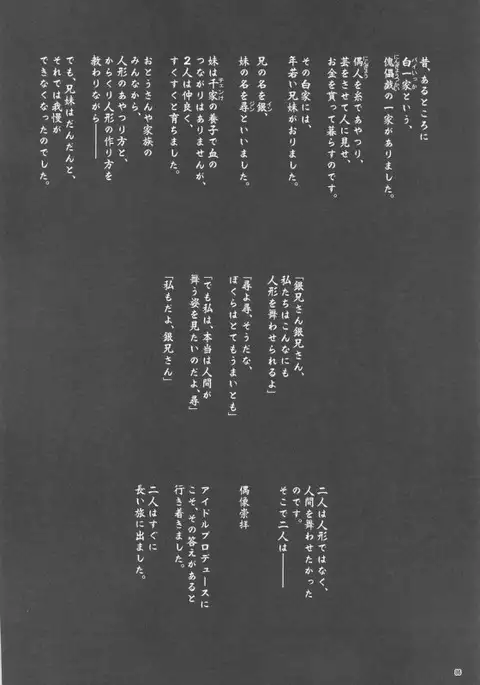 昔、あるところに
白一家という、
傀儡戯の一家がありました。
偶人を糸であやつり、
芸をさせて人に見せ、
お金を貰って暮らすのです。
その白家には、
年若い兄妹がおりました。
兄の名を銀、
妹の名を尋といいました。
妹は千家の養子で血の
つながりはありませんが、
２人は仲良く、
すくすくと育ちました。
おとうさんや家族の
みんなから、
人形のあやつり方と、
からくり人形の作り方を
教わりながら――
でも、兄妹はだんだんと、
それでは我慢が
できなくなったのでした。
「銀兄さん銀兄さん、
私たちはこんなにも
人形を舞わせられるよ」
「尋よ尋、そうだな、
ぼくらはとてもうまいとも」
「でも私は、本当は人間が
舞う姿を見たいのだよ、尋」
「私もだよ、銀兄さん」
二人は人形ではなく、
人間を舞わせたかった
のです。
そこで二人は――
偶像崇祥
アイドルプロデュースに
こそ、その答えがあると
行き着きました。
二人はすぐに
長い旅に出ました。